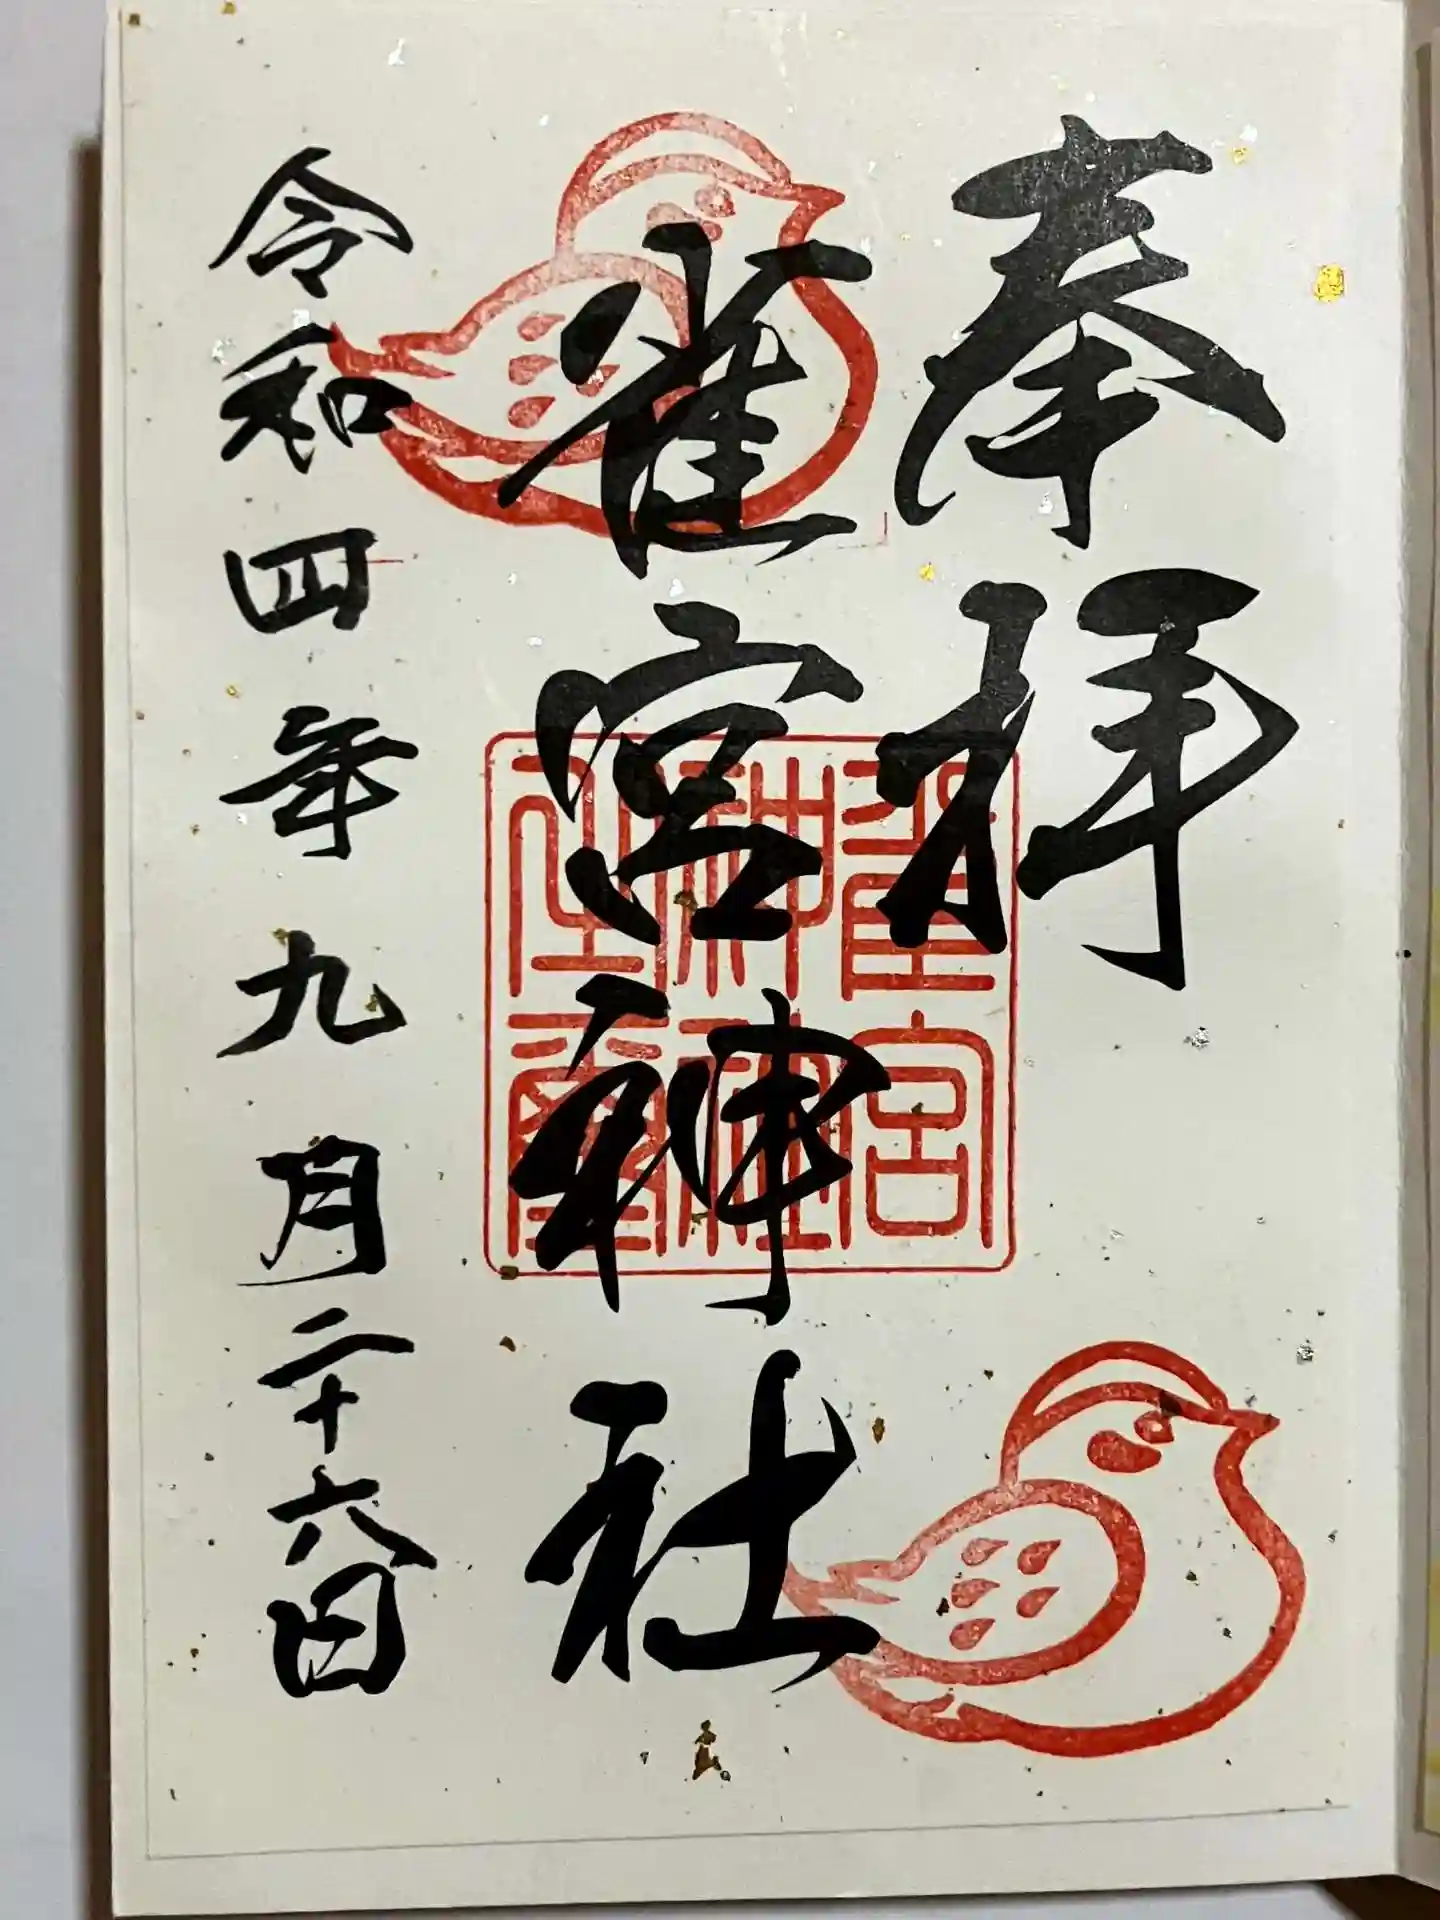 奉拝
雀宮神社
雀宮
神社
令和四年九月二十六日